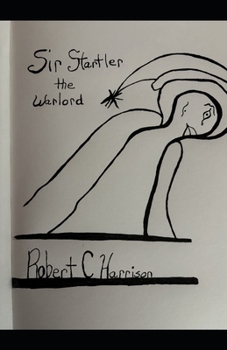 Sir Startler
the
Warlord
Robert C Harrison